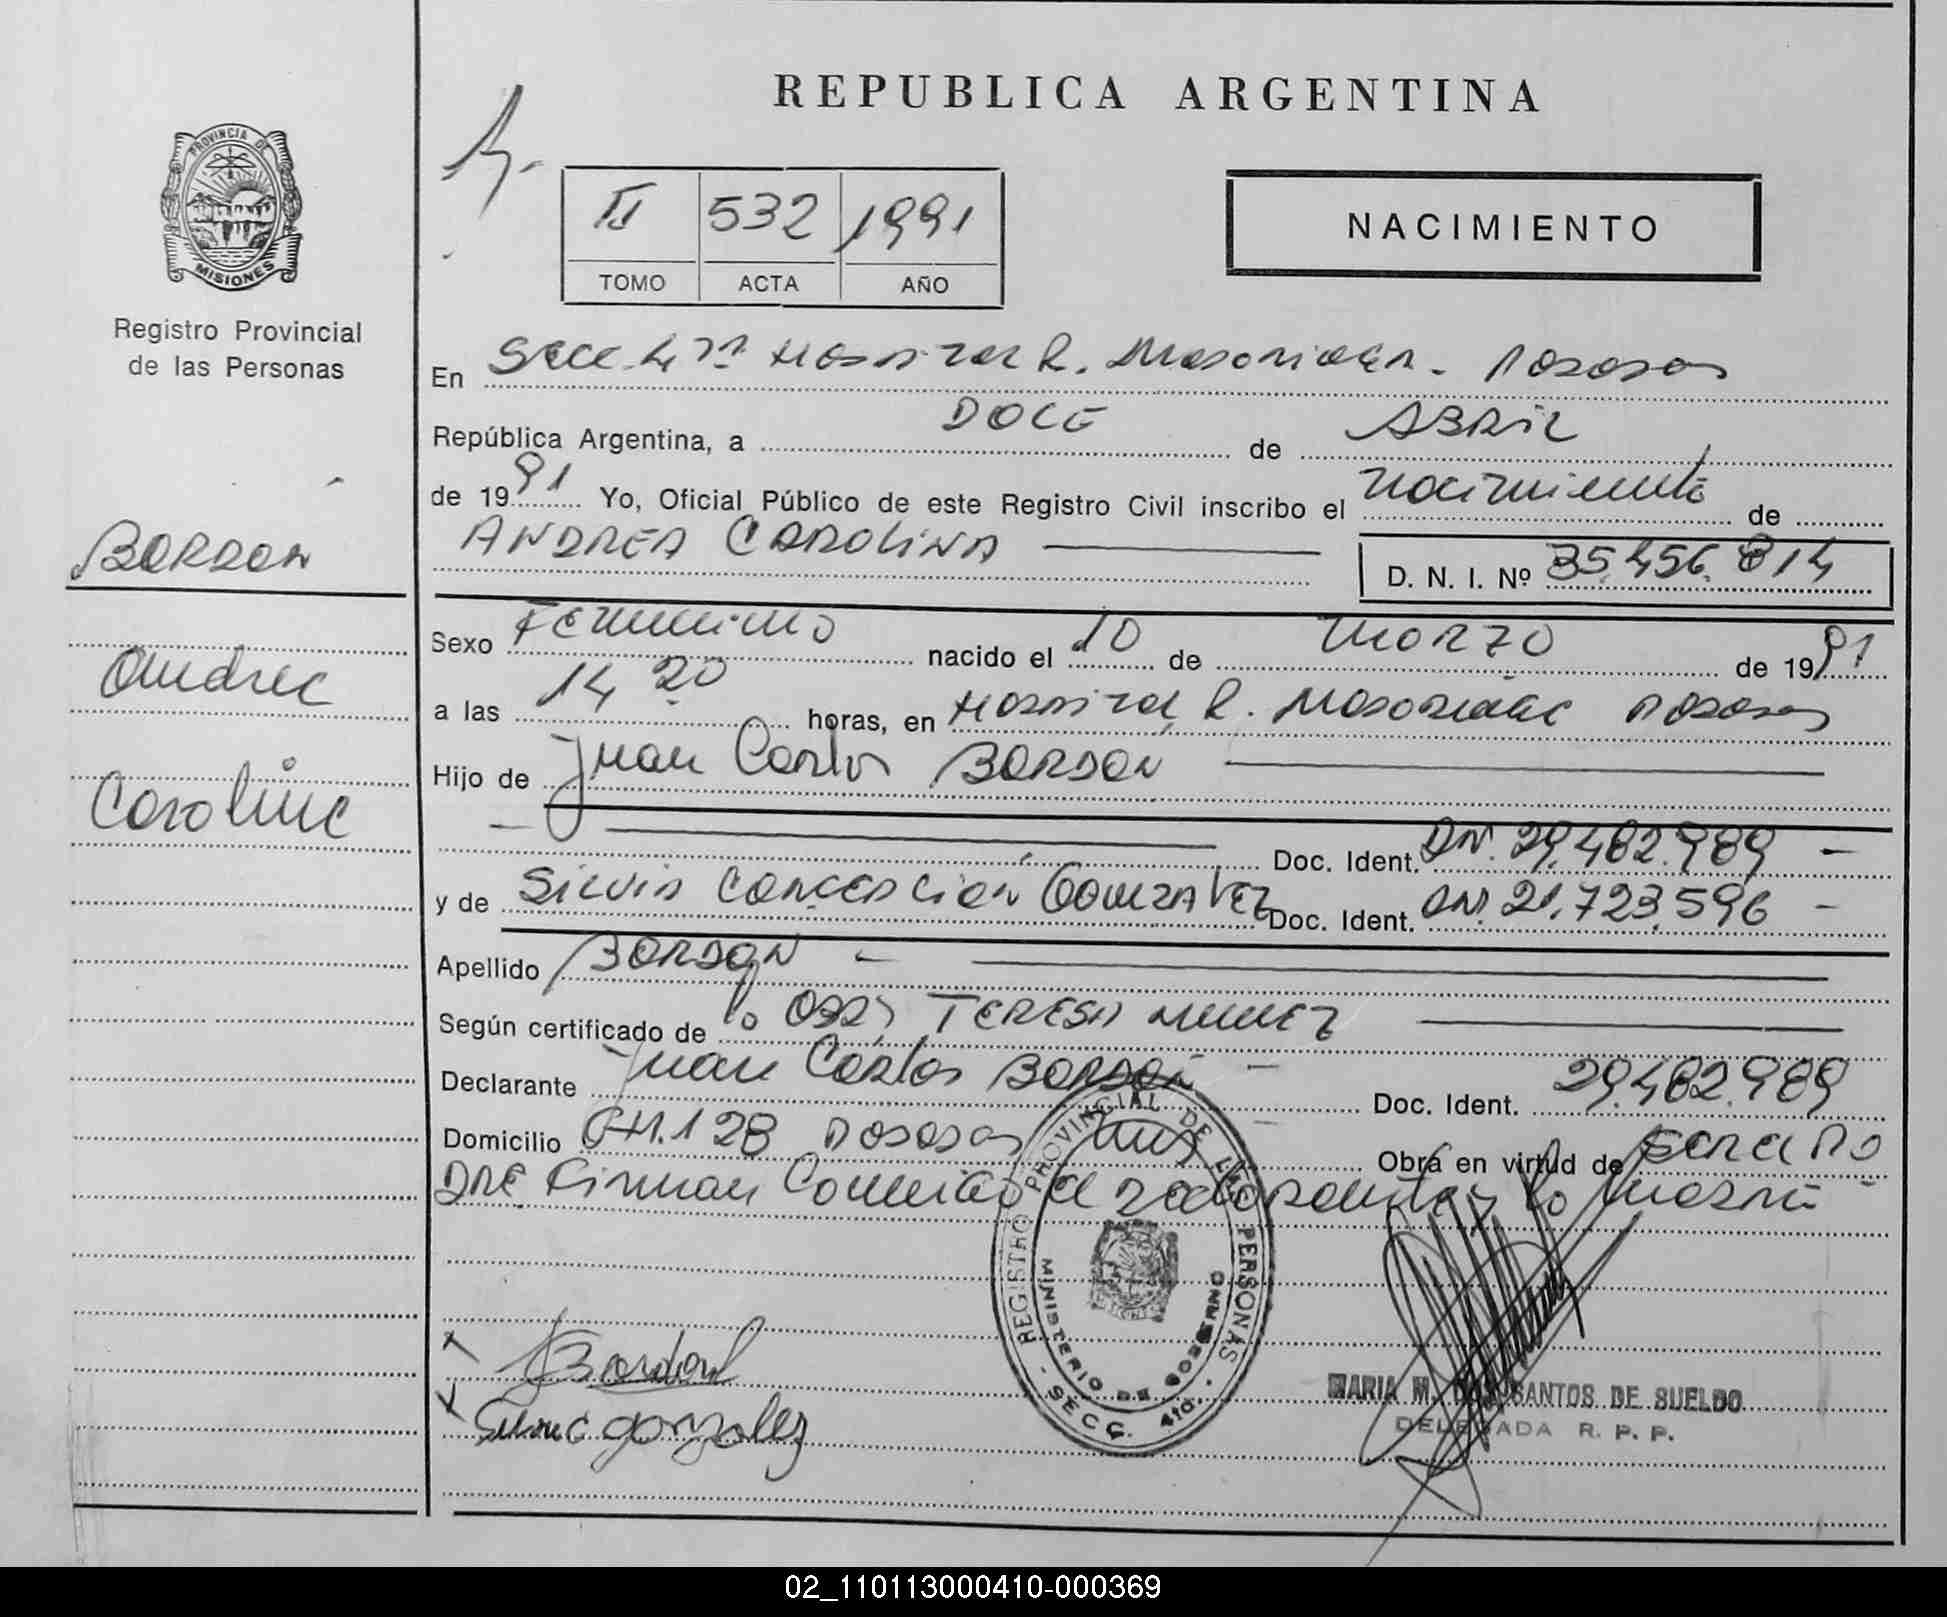 REPUBLICA ARGENTINA
PROVINCIA DE
MISIONES
Registro Provincial
de las Personas
II 532 1991
TOMO ACTA AÑO
NACIMIENTO
En Secc. 4ta Hospital R. Posadas
República Argentina, a DOCE de ABRIL
de 1991 Yo, Oficial Público de este Registro Civil inscribo el nacimiento de
ANDREA CAROLINA
D. N. I. Nº 35.456.814
BORDON
Andrea
Carolina
Sexo Femenino nacido el 10 de Marzo de 1991
a las 14 20 horas, en Hospital R. Posadas
Hijo de Juan Carlos BORDON
Doc. Ident. DNI. 29.482.989
y de SILVIA CONCEPCION GONZALEZ Doc. Ident. DNI. 21.723.596
Apellido BORDON
Según certificado de la TERESA NUÑEZ
Declarante Juan Carlos BORDON Doc. Ident. 29.482.989
Domicilio CH.128 Posadas Obra en virtud de ser el PADRE
Firman el y la
REGISTRO PROVINCIAL DE LAS PERSONAS
MINISTERIO DE GOBIERNO
SECC. 4ta.
Bordon
Silvia gonzalez
MARIA M. SANTOS DE SUELDO
DELEGADA R. P. P.
02_110113000410-000369